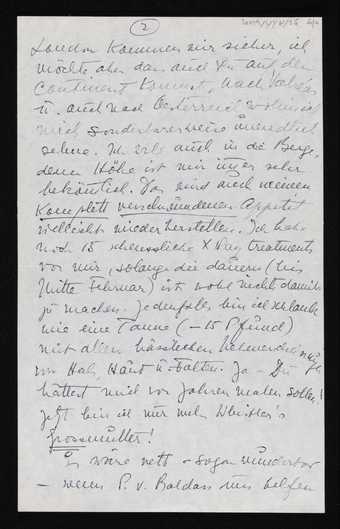 (2)
London kommen wir sicher, ich
möchte aber dass auch Du auf den
Continent kommst, nach
u. auch nach Oesterreich wohin ich
mich sonderbarerweise unendlich
sehne. Ich will auch in die Berge,
deren Höhe ist mir immer sehr
bekömmlich. Das wird auch meinen
komplett verschwundenen Appetit
vielleicht wieder herstellen. Ich habe
noch 15 scheussliche X Ray treatments
vor mir, solange die dauern (bis
Mitte Februar) ist wohl nicht damit
zu machen. Jedenfalls bin ich schlank
wie eine Tanne (– 15 Pfund)
mit allen hässlichen
von Hals, Haut u. Falten. Ja – Du
hättest mich vor Jahren malen sollen!
Jetzt bin ich nur mehr Whistler's
Grossmutter!
Es wäre nett – sogar wunderbar
– wenn P. v. Baldass uns helfen